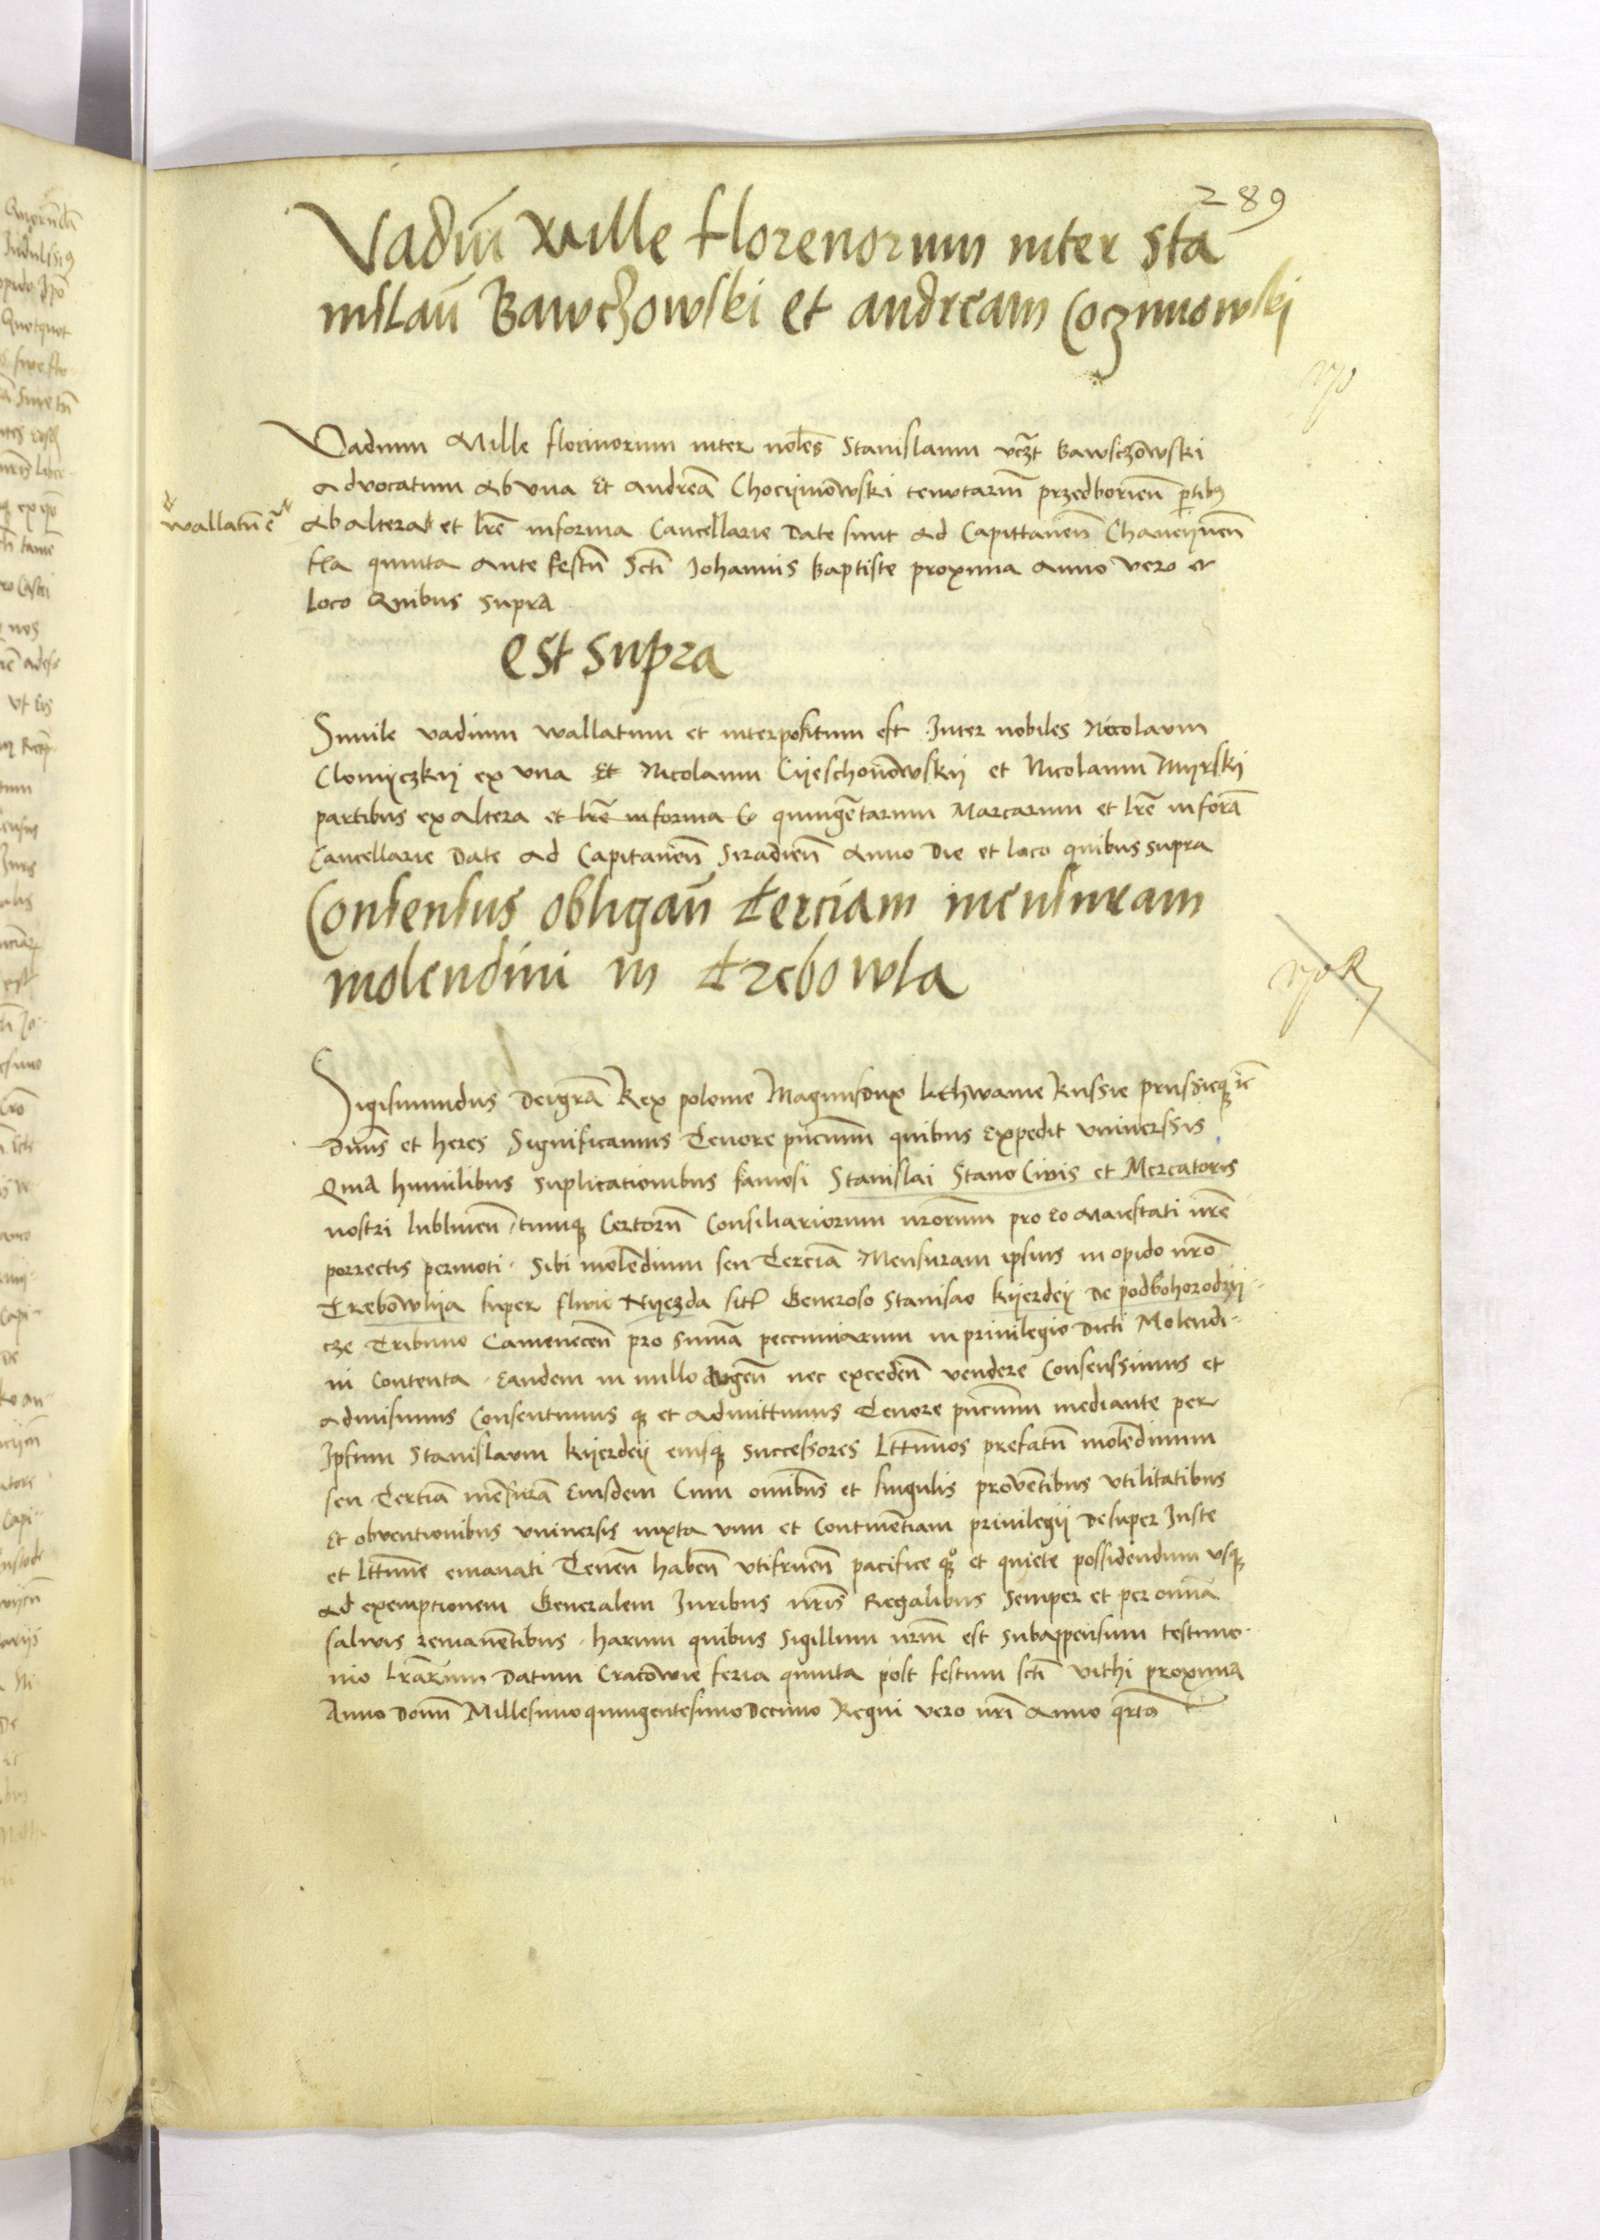 289
Vadiū Mille florenorum inter Sta
nislaū Bawczowski et andream Coczmowski
Vadium Mille florinorum inter nobles Stanislaum vczt Bawsczowski
Advocatum ab vna Et Andreā Chocijmowski tenutariū przedborien̄ ptibus
wallatū ē
ab altera et lrē in forma Cancellarie Date sunt ad Capittanen̄ Chancijnen̄
fia quinta ante festū Scti Johannis Baptiste proxima anno vero et
loco Quibus supra
Est supra
Simile vadium wallatum et interpositum est Inter nobiles Nicolaum
Clomijczkij ex vna Et Nicolaum Cijeschonowskij et Nicolaum Mijrskij
partibus ex altera et lrē in forma C quingētarum Marcarum et lrē in formā
Cancellarie Date ad Capitanen̄ Siradien̄ Anno Die et loco quibus supra
Consensus obligan̄ terciam mensuram
molendini in trebowla
Sigismundus Dei grā Rex polonie Magnus dux lithwanie Russie prussieq̄ ic̄
Dnūs et heres Significamus Tenore pn̄cium quibus expedit vniuerssis
Quia humilibus suplicationibus famosi Stanislai Stano Ciuis et Mercatoris
nostri lublinen̄ tumq̄ Certorū Consiliariorum nrōrum pro eo Maiestati nrē
porrectis permoti. Sibi molendinum seu Terciā Mensuram ipsius in opido nrō
Trebowlija super fluuiū Nijezda sitū Generoso Stanislao kijerdeij De podbohorodzij
cze Tribuno Camenecen̄ pro sum̄a peccuniarum in priuilegio Dicti Molendi
ni Contenta. Eandem in nullo augen̄ nec exceden̄ vendere Consenssimus et
admisimus Consentimus q̄ et admittimus Tenore pn̄cium mediante per
Ipsum Stanislaum kijerdeij eiusq̄ successores Lttimos prefatū molendinum
seu Tertiā mēsurā Eiusdem Cum omībus et singulis prouētibus vtilitatibus
Et obuentionibus vniuersis iuxta vim et Continētiam priuilegii Desuper Iuste
et lttime emanati Tenen̄ haben̄ vtifruen̄ pacifice q̄ et quiete possidendum vsq̄
ad exemptionem Generalem Iuribus nrīs Regalibus Semper et per omīa
saluis remanētibus. harum quibus Sigillum nrūm est subappensum testimo
nio lrārum Datum Cracowie feria quinta post festum scti vithi proxima
Anno Domī Millesimo quingentesimo Decimo Regni vero nrī Anno qrto